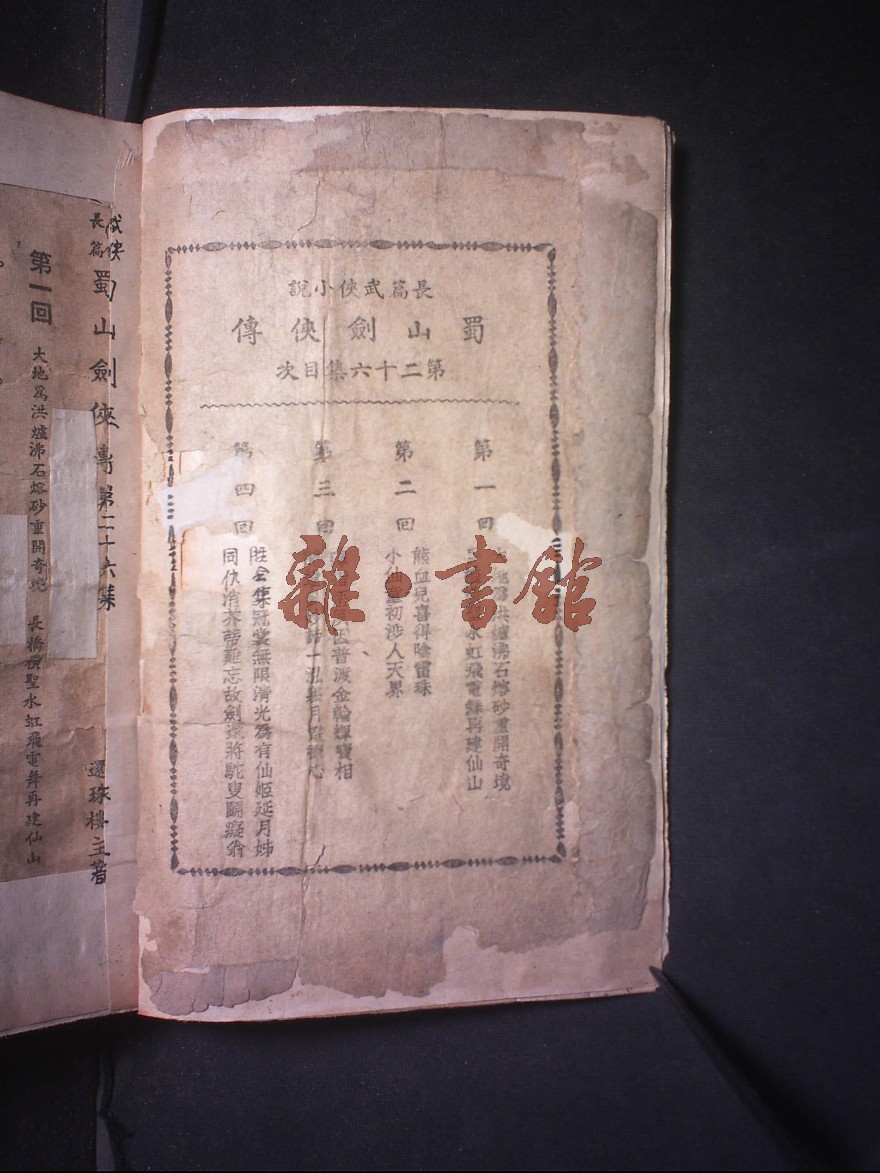 長篇武俠小說
蜀山劍俠傳
第二十六集目次
第一回
洪爐沸石熔砂重開奇境
水虹飛電舞再建仙山
第二回
熊血兒喜得陰雷珠
小仙童初涉人天界
第三回
因普渡金輪輝寶相
第四回
集冠裳無限清光為有仙姬延月姊
同伏消芥蒂難忘故劍還將駝叟鬭癡翁
武俠長篇
蜀山劍俠傳第二十六集
還珠樓主著
第一回
大地為洪爐沸石熔砂重開奇境
長橋橫聖水虹飛電舞再建仙山
雜·書館